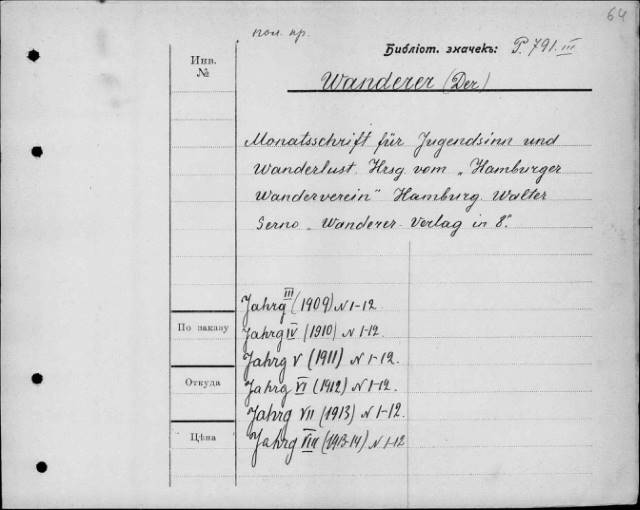 64
пол. кр.
Библіот. значекъ: P. 791.III
Инв.
№
Wanderer (Der)
Monatsschrift für Jugendsinn und
Wanderlust. Hrsg. vom „Hamburger
Wanderverein" Hamburg. Walter
Serno „Wanderer-Verlag in 8°.
Jahrg III (1909) N 1-12
Jahrg IV (1910) N 1-12.
По заказу
Jahrg V (1911) N 1-12.
Откуда
Jahrg VI (1912) N 1-12.
Jahrg VII (1913) N 1-12.
Цѣна
Jahrg VIII (1913-14) N 1-12